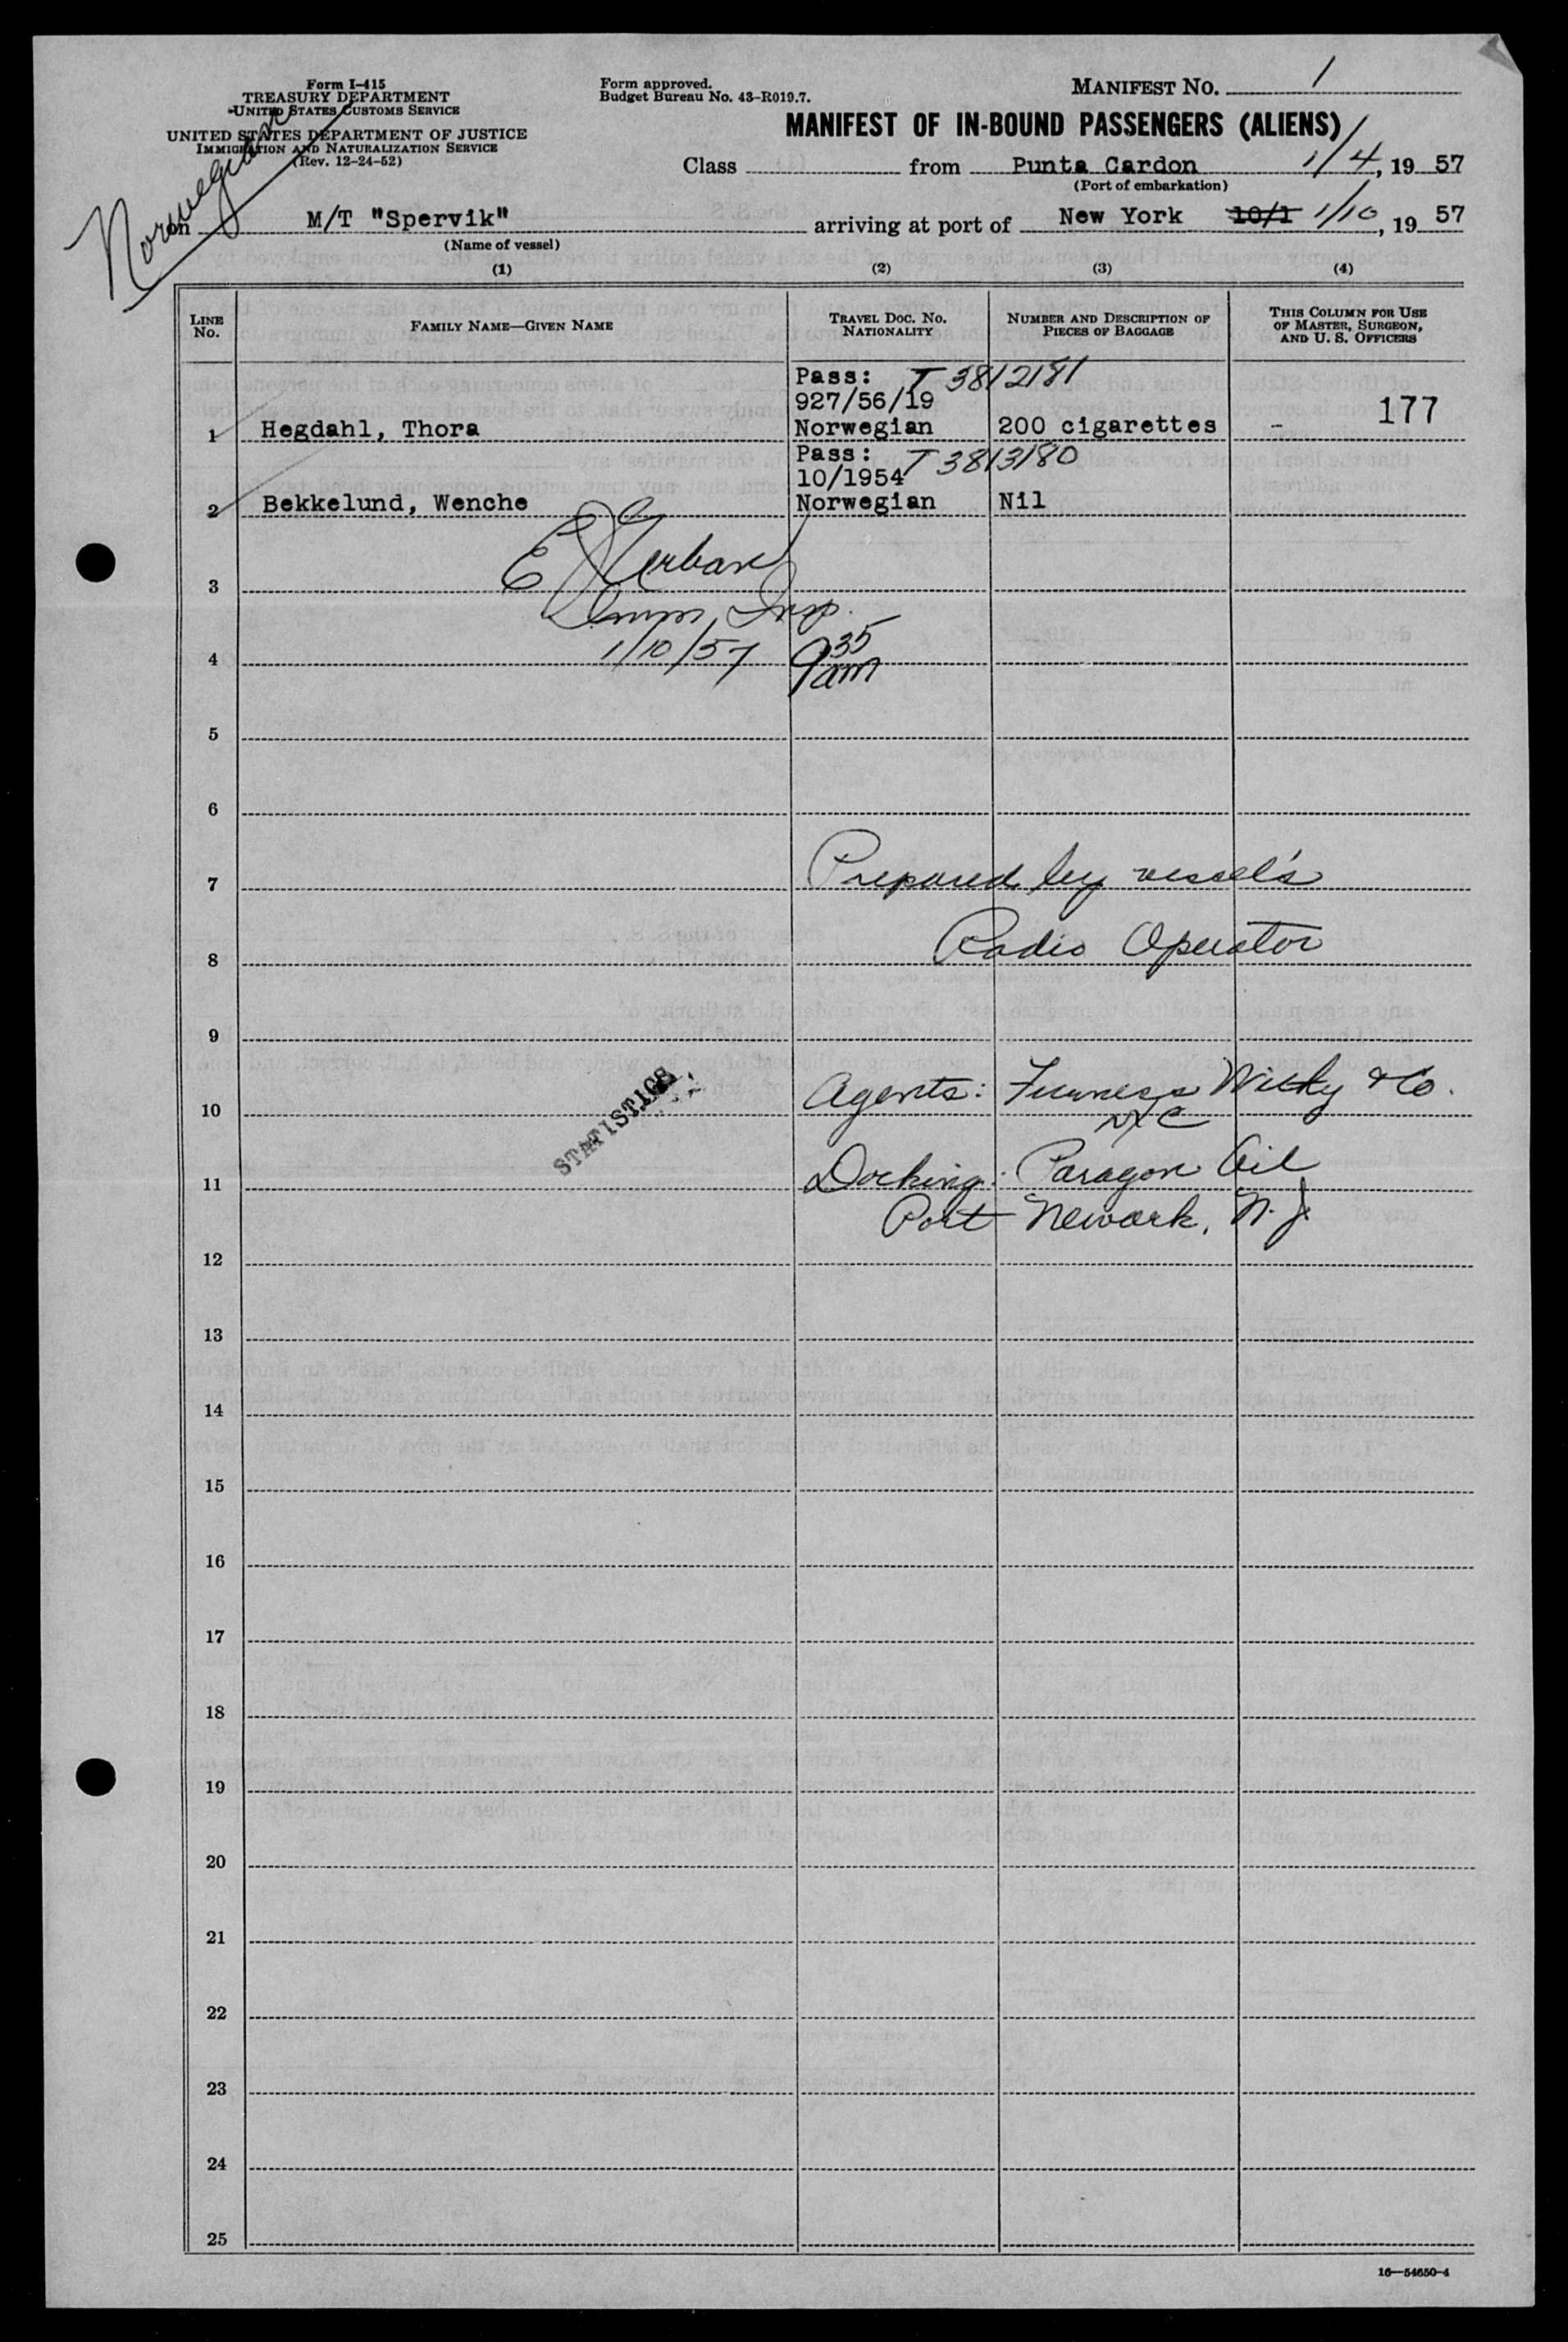 Form I-415
TREASURY DEPARTMENT
UNITED STATES CUSTOMS SERVICE
UNITED STATES DEPARTMENT OF JUSTICE
IMMIGRATION AND NATURALIZATION SERVICE
(Rev. 12-24-52)
Norwegian
Form approved.
Budget Bureau No. 43-R019.7.
MANIFEST NO. 1
MANIFEST OF IN-BOUND PASSENGERS (ALIENS)
Class from Punta Cardon 1/4, 19 57
(Port of embarkation)
on M/T "Spervik" arriving at port of New York 10/1 1/10, 19 57
(Name of vessel)
(1) (2) (3) (4)
LINE No. FAMILY NAME—GIVEN NAME TRAVEL DOC. NO. NATIONALITY NUMBER AND DESCRIPTION OF PIECES OF BAGGAGE THIS COLUMN FOR USE OF MASTER, SURGEON, AND U. S. OFFICERS
Pass: T 3812181
927/56/19
1 Hegdahl, Thora Norwegian 200 cigarettes - 177
Pass: T 3813180
10/1954
2 Bekkelund, Wenche Norwegian Nil
3
Imm Insp.
4 1/10/57 9 35 am
5
6
7 Prepared by vessel's
8 Radio Operator
9
10 Agents: Furness Withy & Co.
NYC
STATISTICS
11 Docking: Paragon Oil
Port Newark, N.J.
12
13
14
15
16
17
18
19
20
21
22
23
24
25
16—54650-4